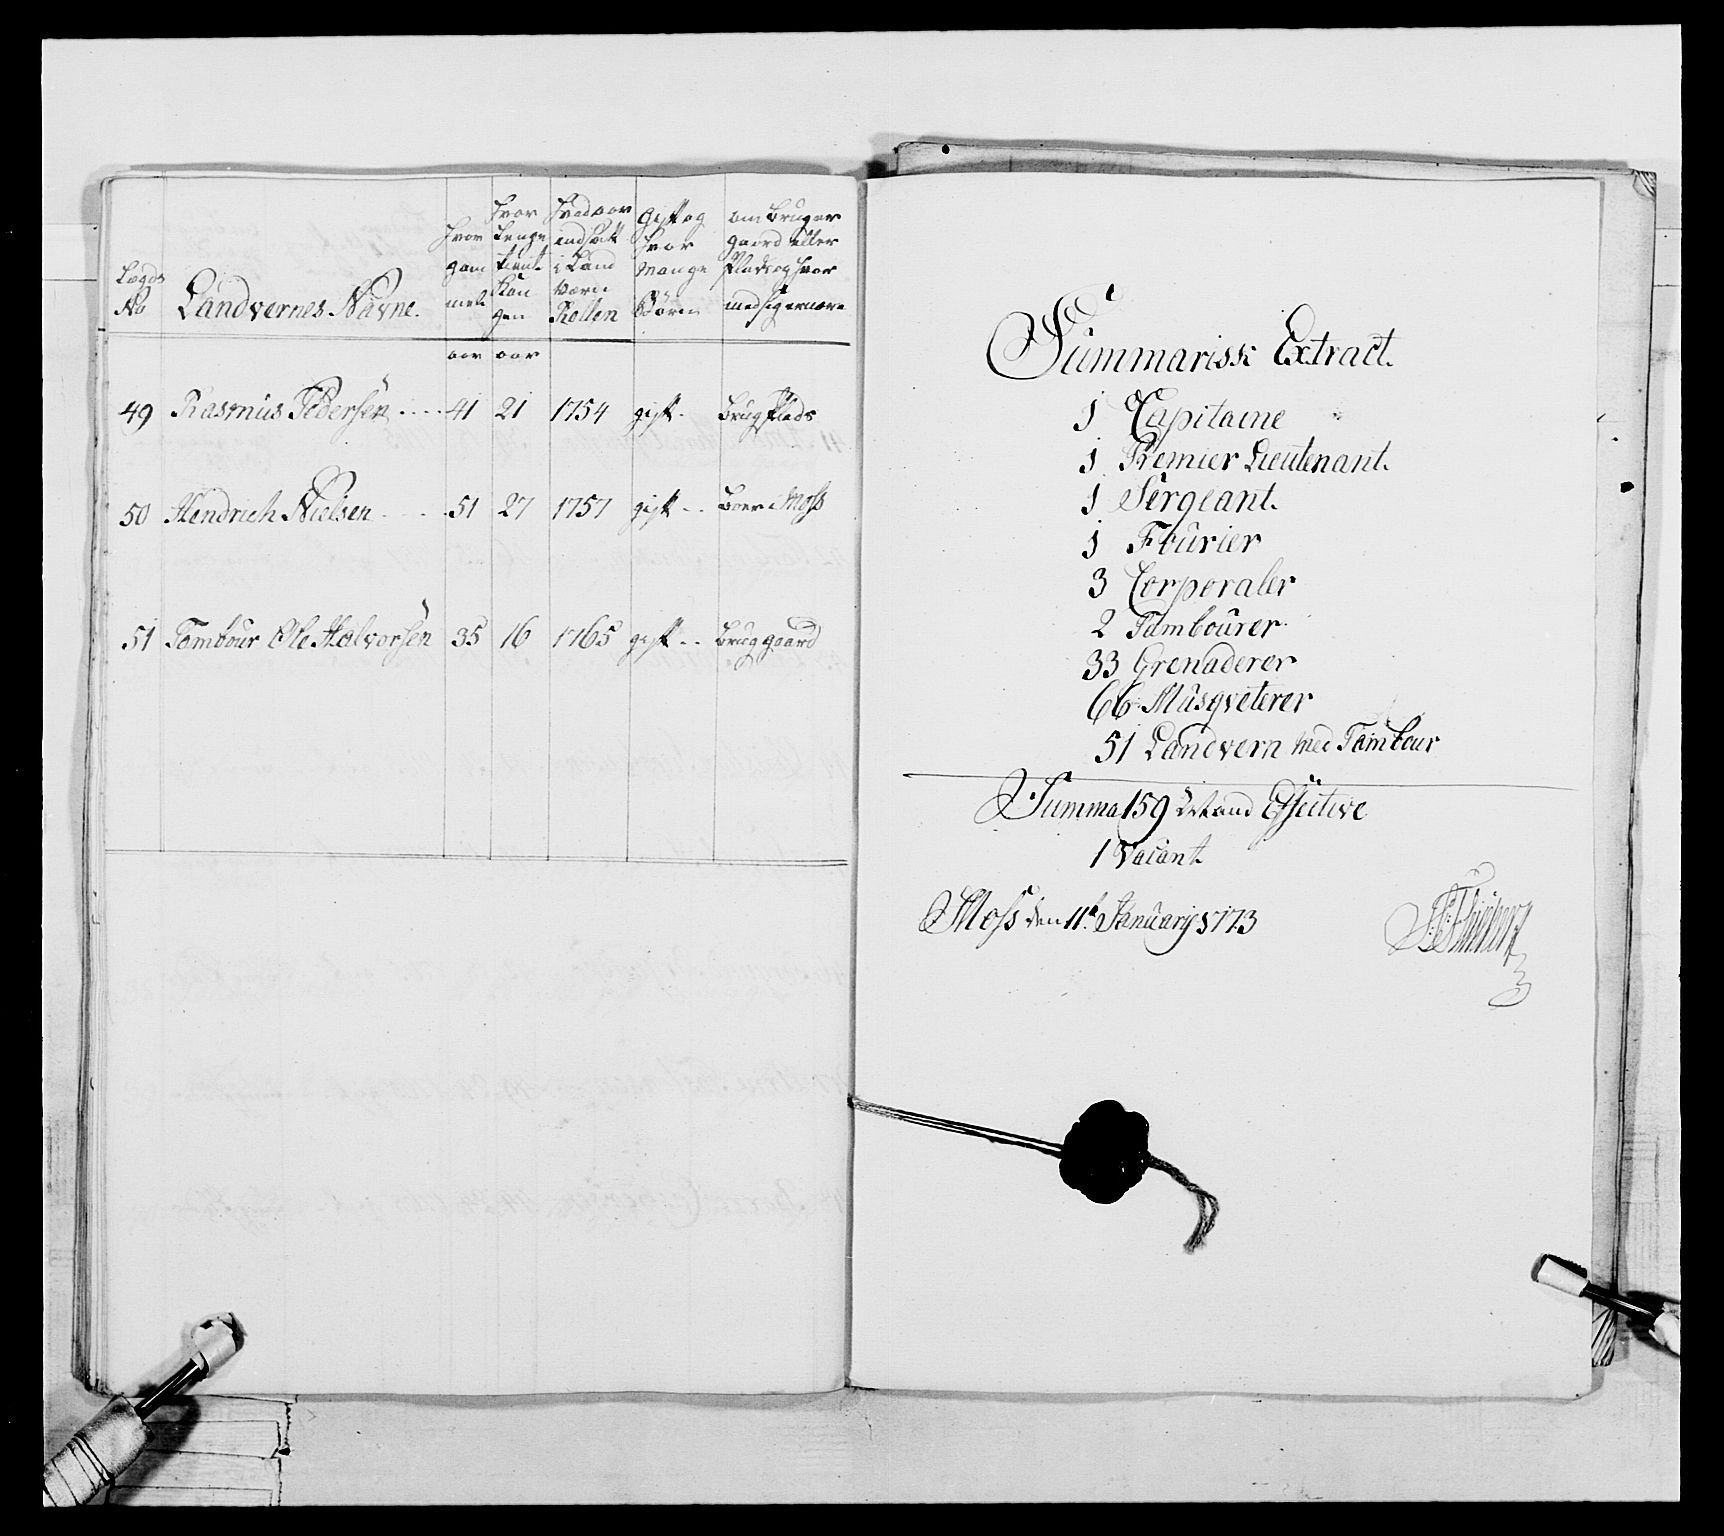 Lægds No
Landvernes Navne.
hvor gam mel
hvor lenge tient Kon gen
hvad aar indsadt i Land værn Rollen
Gift og hvor mange Børn
om Bruger gaard eller Plads og hvor med sig ernære
aar aar
49 Rasmus Pedersen 41 21 1754 gift. Brug Plads
50 Hendrich Nielsen 51 27 1757 gift Boer i Moss
51 Tambour Ole Halvorsen 35 16 1765 gift Brug gaard
Summarisk Extract.
1 Capitaine
1 Premier Lieutenant.
1 Sergeant.
1 Fourier
3 Corporaler
2 Tambourer
33 Grenaderer
66 Musqveterer
51 Landvern med Tambour
Summa 159 Mand Effective
1 Vacant
Moss den 11te January 1773